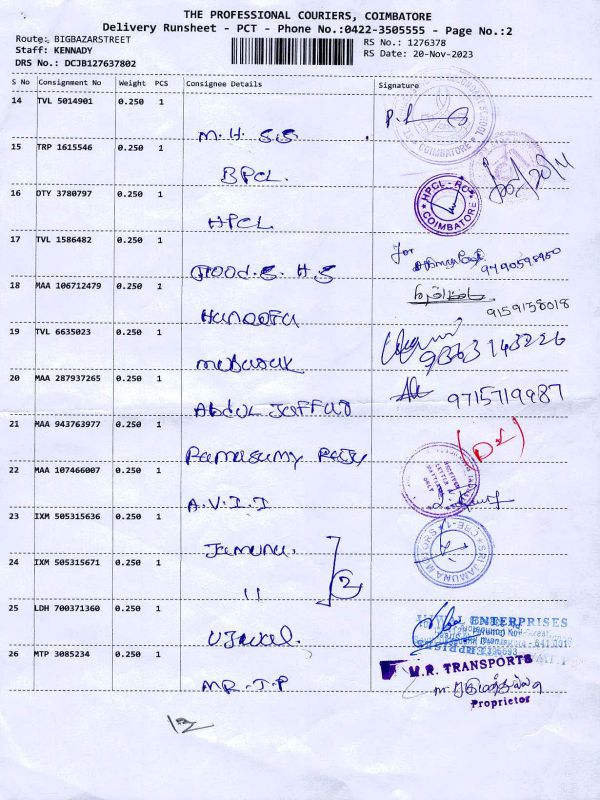 THE PROFESSIONAL COURIERS, COIMBATORE
Delivery Runsheet - PCT - Phone No.:0422-3505555 - Page No.:2
Route: BIGBAZARSTREET
Staff: KENNADY
DRS No.: DCJB127637802
RS No.: 1276378
RS Date: 20-Nov-2023
S No Consignment No Weight PCS Consignee Details Signature
14 TVL 5014901 0.250 1 M.H.S.S
COIMBATORE
15 TRP 1615546 0.250 1 BPCL.
16 DTY 3780797 0.250 1 HPCL
HPCL - RO COIMBATORE
17 TVL 1586482 0.250 1 Good.S.H.S
for
9790598950
18 MAA 106712479 0.250 1 Haneefa
9159158018
19 TVL 6635023 0.250 1 mubarak
9363143226
20 MAA 287937265 0.250 1 Abdul Jaffar
9715719987
21 MAA 943763977 0.250 1 Ramasamy Raju
22 MAA 107466007 0.250 1 A.V.I.I
23 IXM 505315636 0.250 1 Jamuna.
SRI JAMUNA MOTORS CBE-1
24 IXM 505315671 0.250 1 11
2
25 LDH 700371360 0.250 1 Ujwal.
ENTERPRISES
26 MTP 3085234 0.250 1 MR.J.P
M.R. TRANSPORTS
Proprietor
12